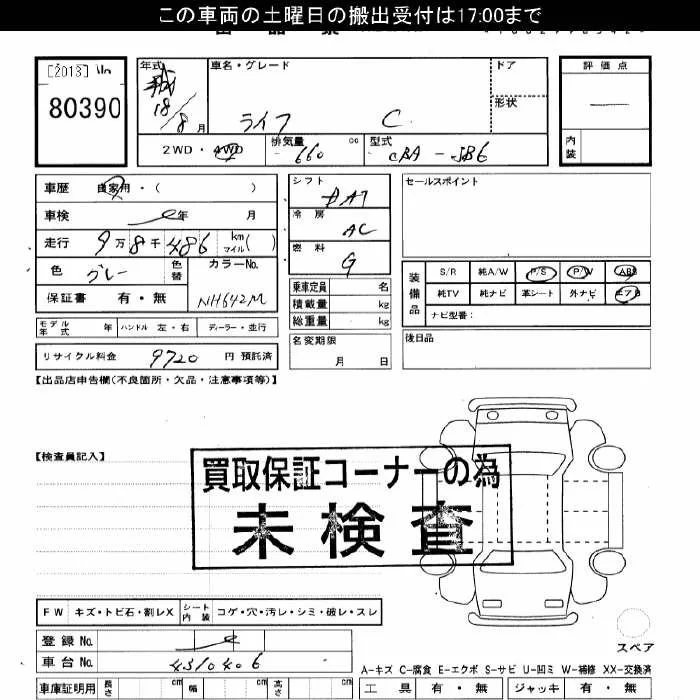 この車両の土曜日の搬出受付は17:00まで
[2013]
80390
年式
18/8月
車名・グレード
ライフ C
ドア
形状
評価点
内装
2WD・4WD
排気量 660 cc
型式 CBA-JB6
車歴 自家用・( )
車検 年 月
走行 9万8千486 km マイル( )
色 グレー
色替
カラーNo. NH642M
保証書 有・無
シフト DAT
冷房 AC
燃料 G
乗車定員 名
積載量 kg
総重量 kg
セールスポイント
装備品
S/R 純A/W P/S P/W ABS
純TV 純ナビ 革シート 外ナビ エアB
ナビ型番:
モデル年式 年 ハンドル 左・右 ディーラー・並行
名変期限 月 日
後日品
リサイクル料金 9720 円 預託済
【出品店申告欄(不良箇所・欠品・注意事項等)】
【検査員記入】
買取保証コーナーの為
未検査
FW キズ・トビ石・割レX シート内装 コゲ・穴・汚レ・シミ・破レ・スレ
登録No.
車台No. 4310406
スペア
A-キズ C-腐食 E-エクボ S-サビ U-凹ミ W-補修 XX-交換済
車庫証明用 長さ cm 幅 cm 高さ cm
工具 有・無 ジャッキ 有・無